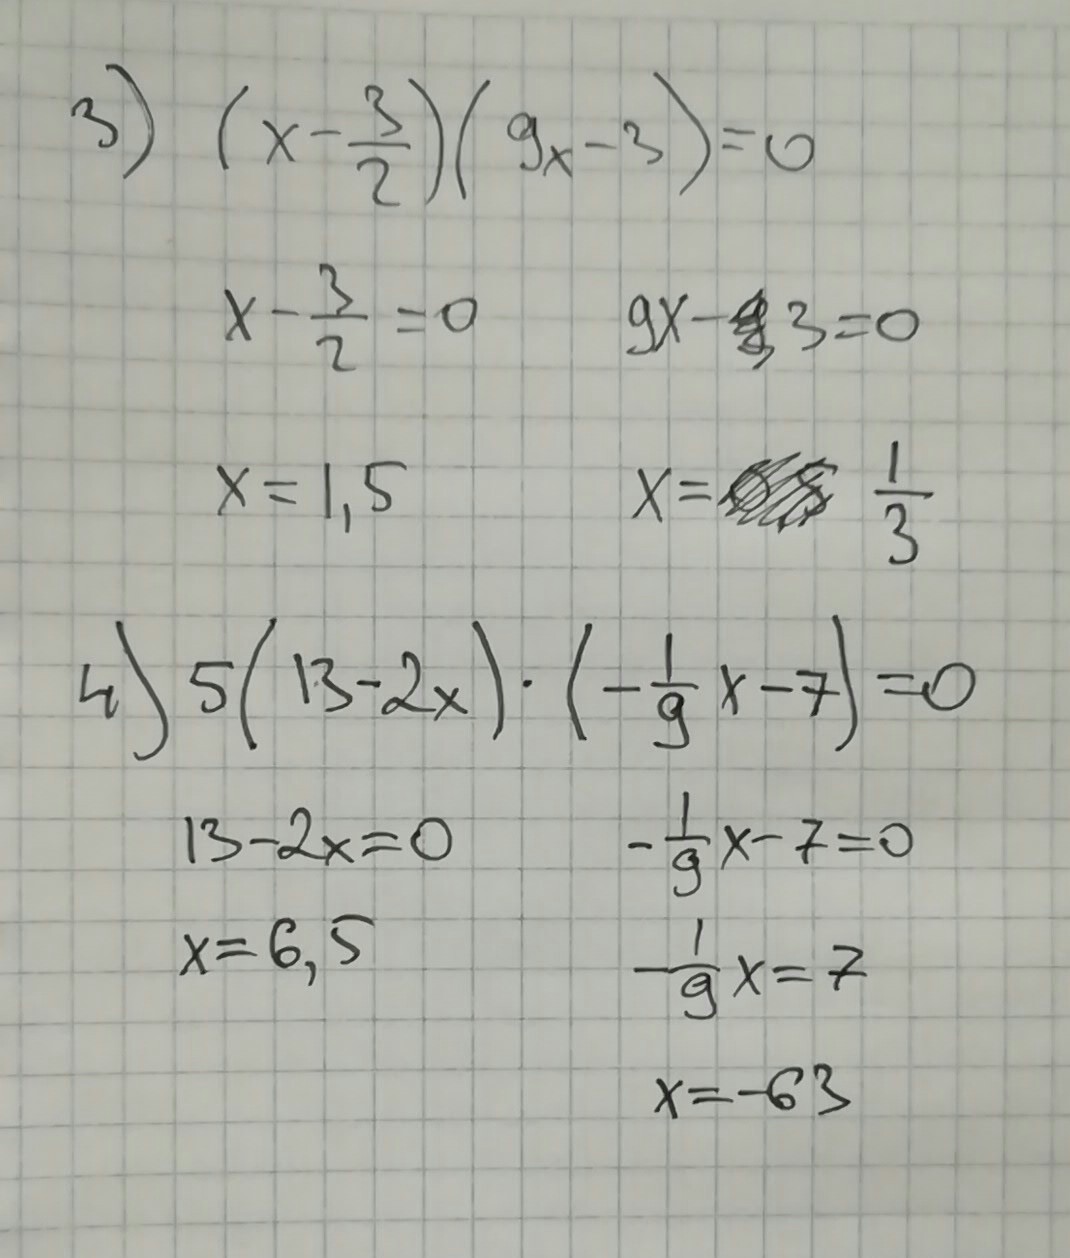 3) (x - 3/2)(9x - 3) = 0
x - 3/2 = 0    9x - 3 = 0
x = 1,5    x = 1/3
4) 5(13 - 2x) · (-1/9 x - 7) = 0
13 - 2x = 0    -1/9 x - 7 = 0
x = 6,5    -1/9 x = 7
x = -63